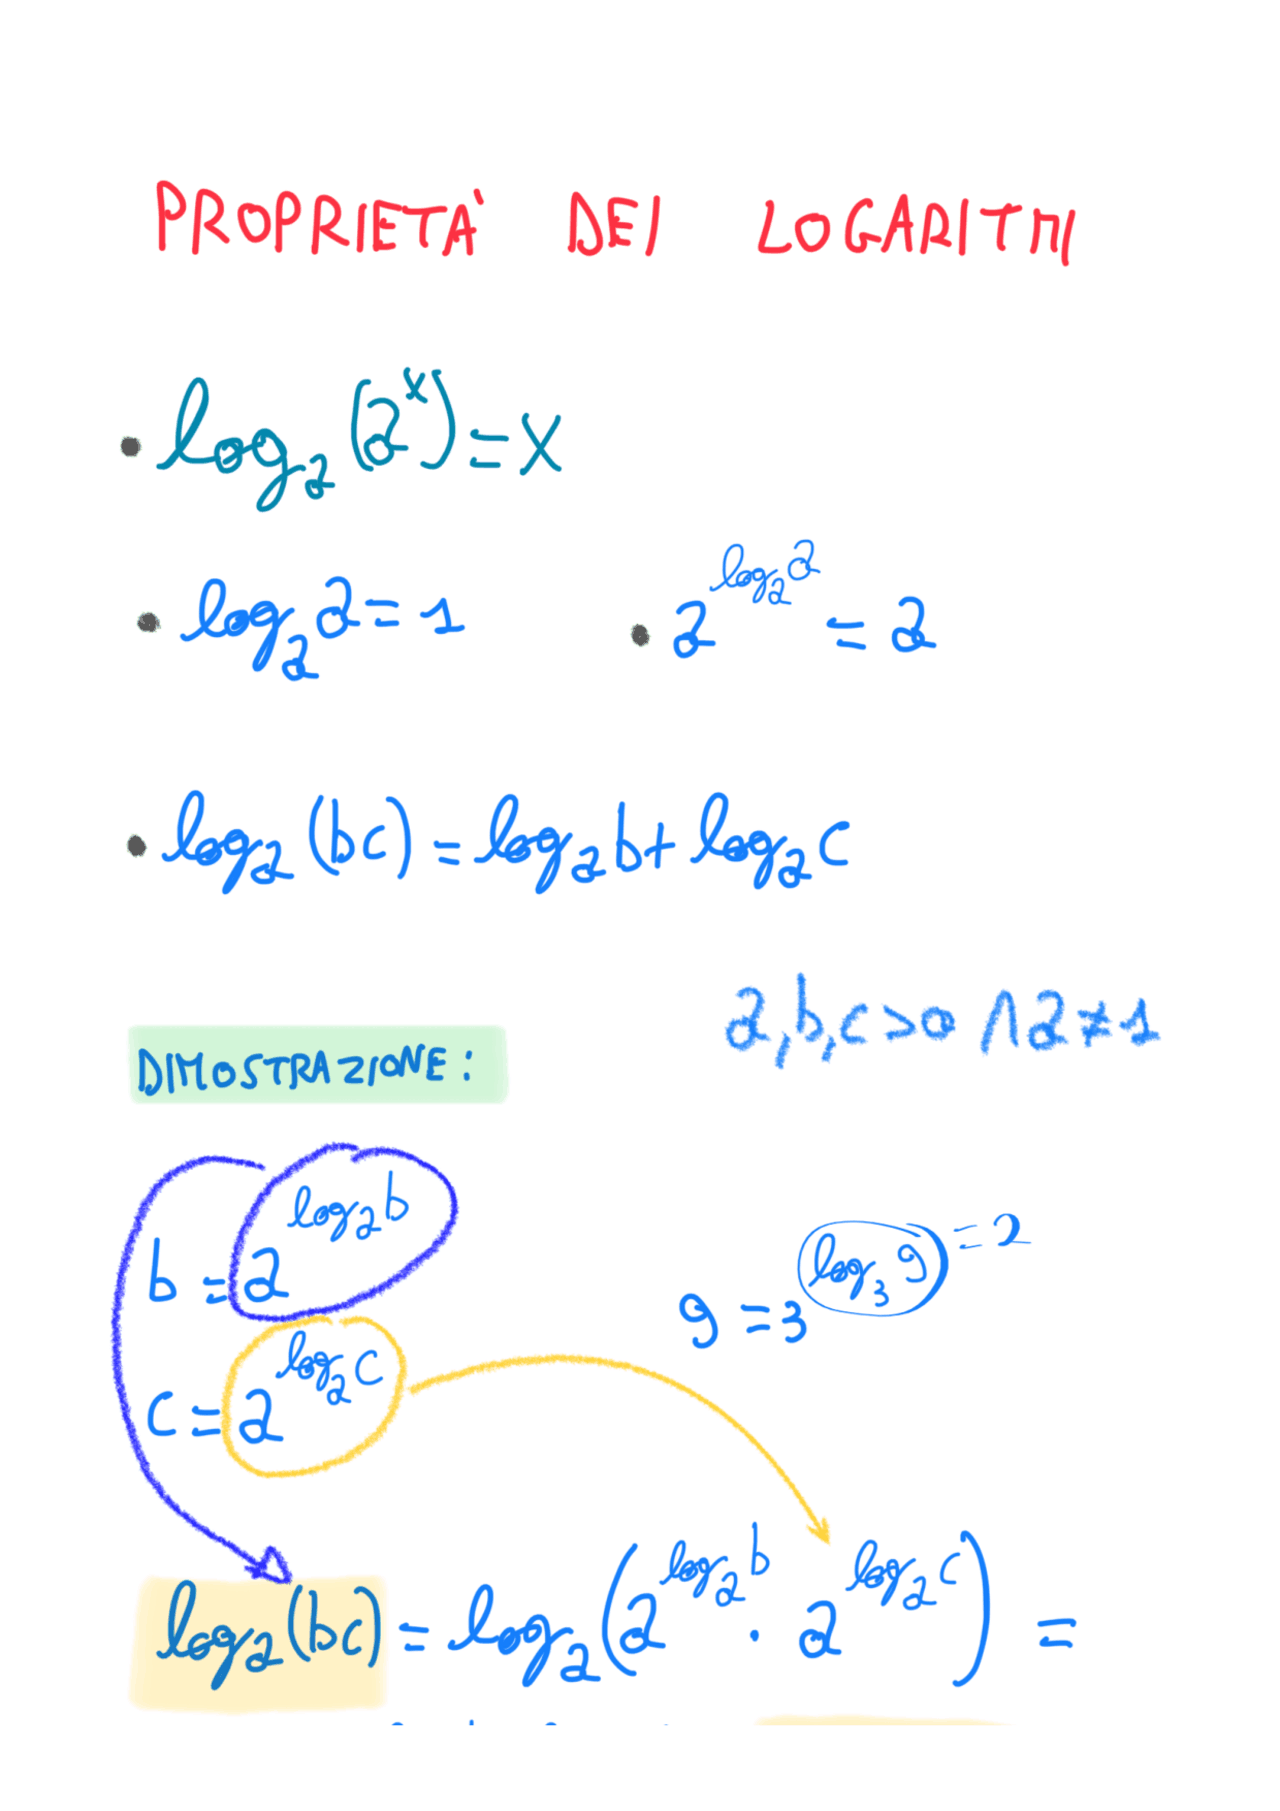 PROPRIETÀ DEI LOGARITMI
• logₐ(aˣ) = x
• logₐ a = 1 • a^(logₐ a) = a
• logₐ(bc) = logₐ b + logₐ c
a, b, c > 0 ∧ a ≠ 1
DIMOSTRAZIONE:
b = a^(logₐ b)
9 = 3^(log₃ 9) = 2
c = a^(logₐ c)
logₐ(bc) = logₐ(a^(logₐ b) · a^(logₐ c)) =